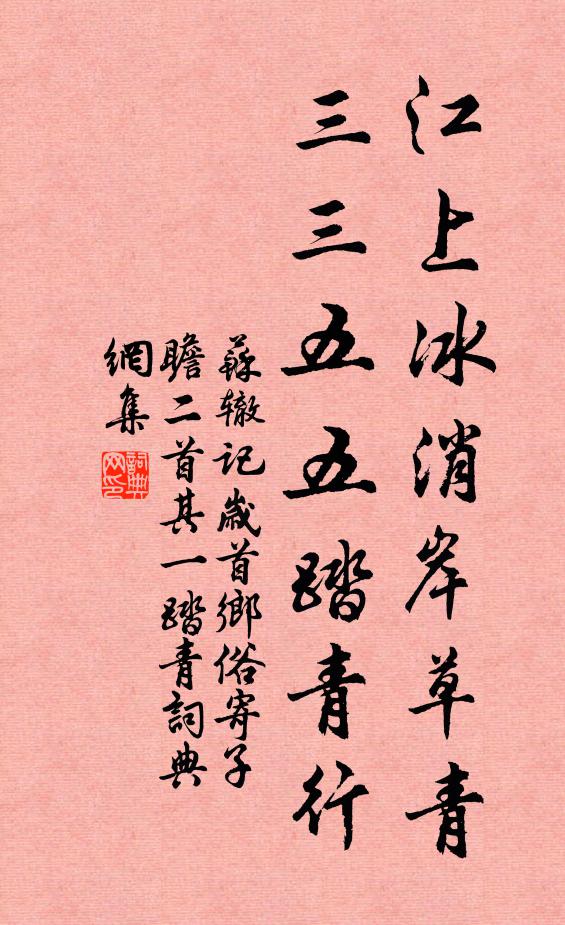 江上冰消岸草青
三三五五踏青行
蘇辙記歲首鄉俗寄子
瞻二首其一踏青詞典
網集
詞典网印